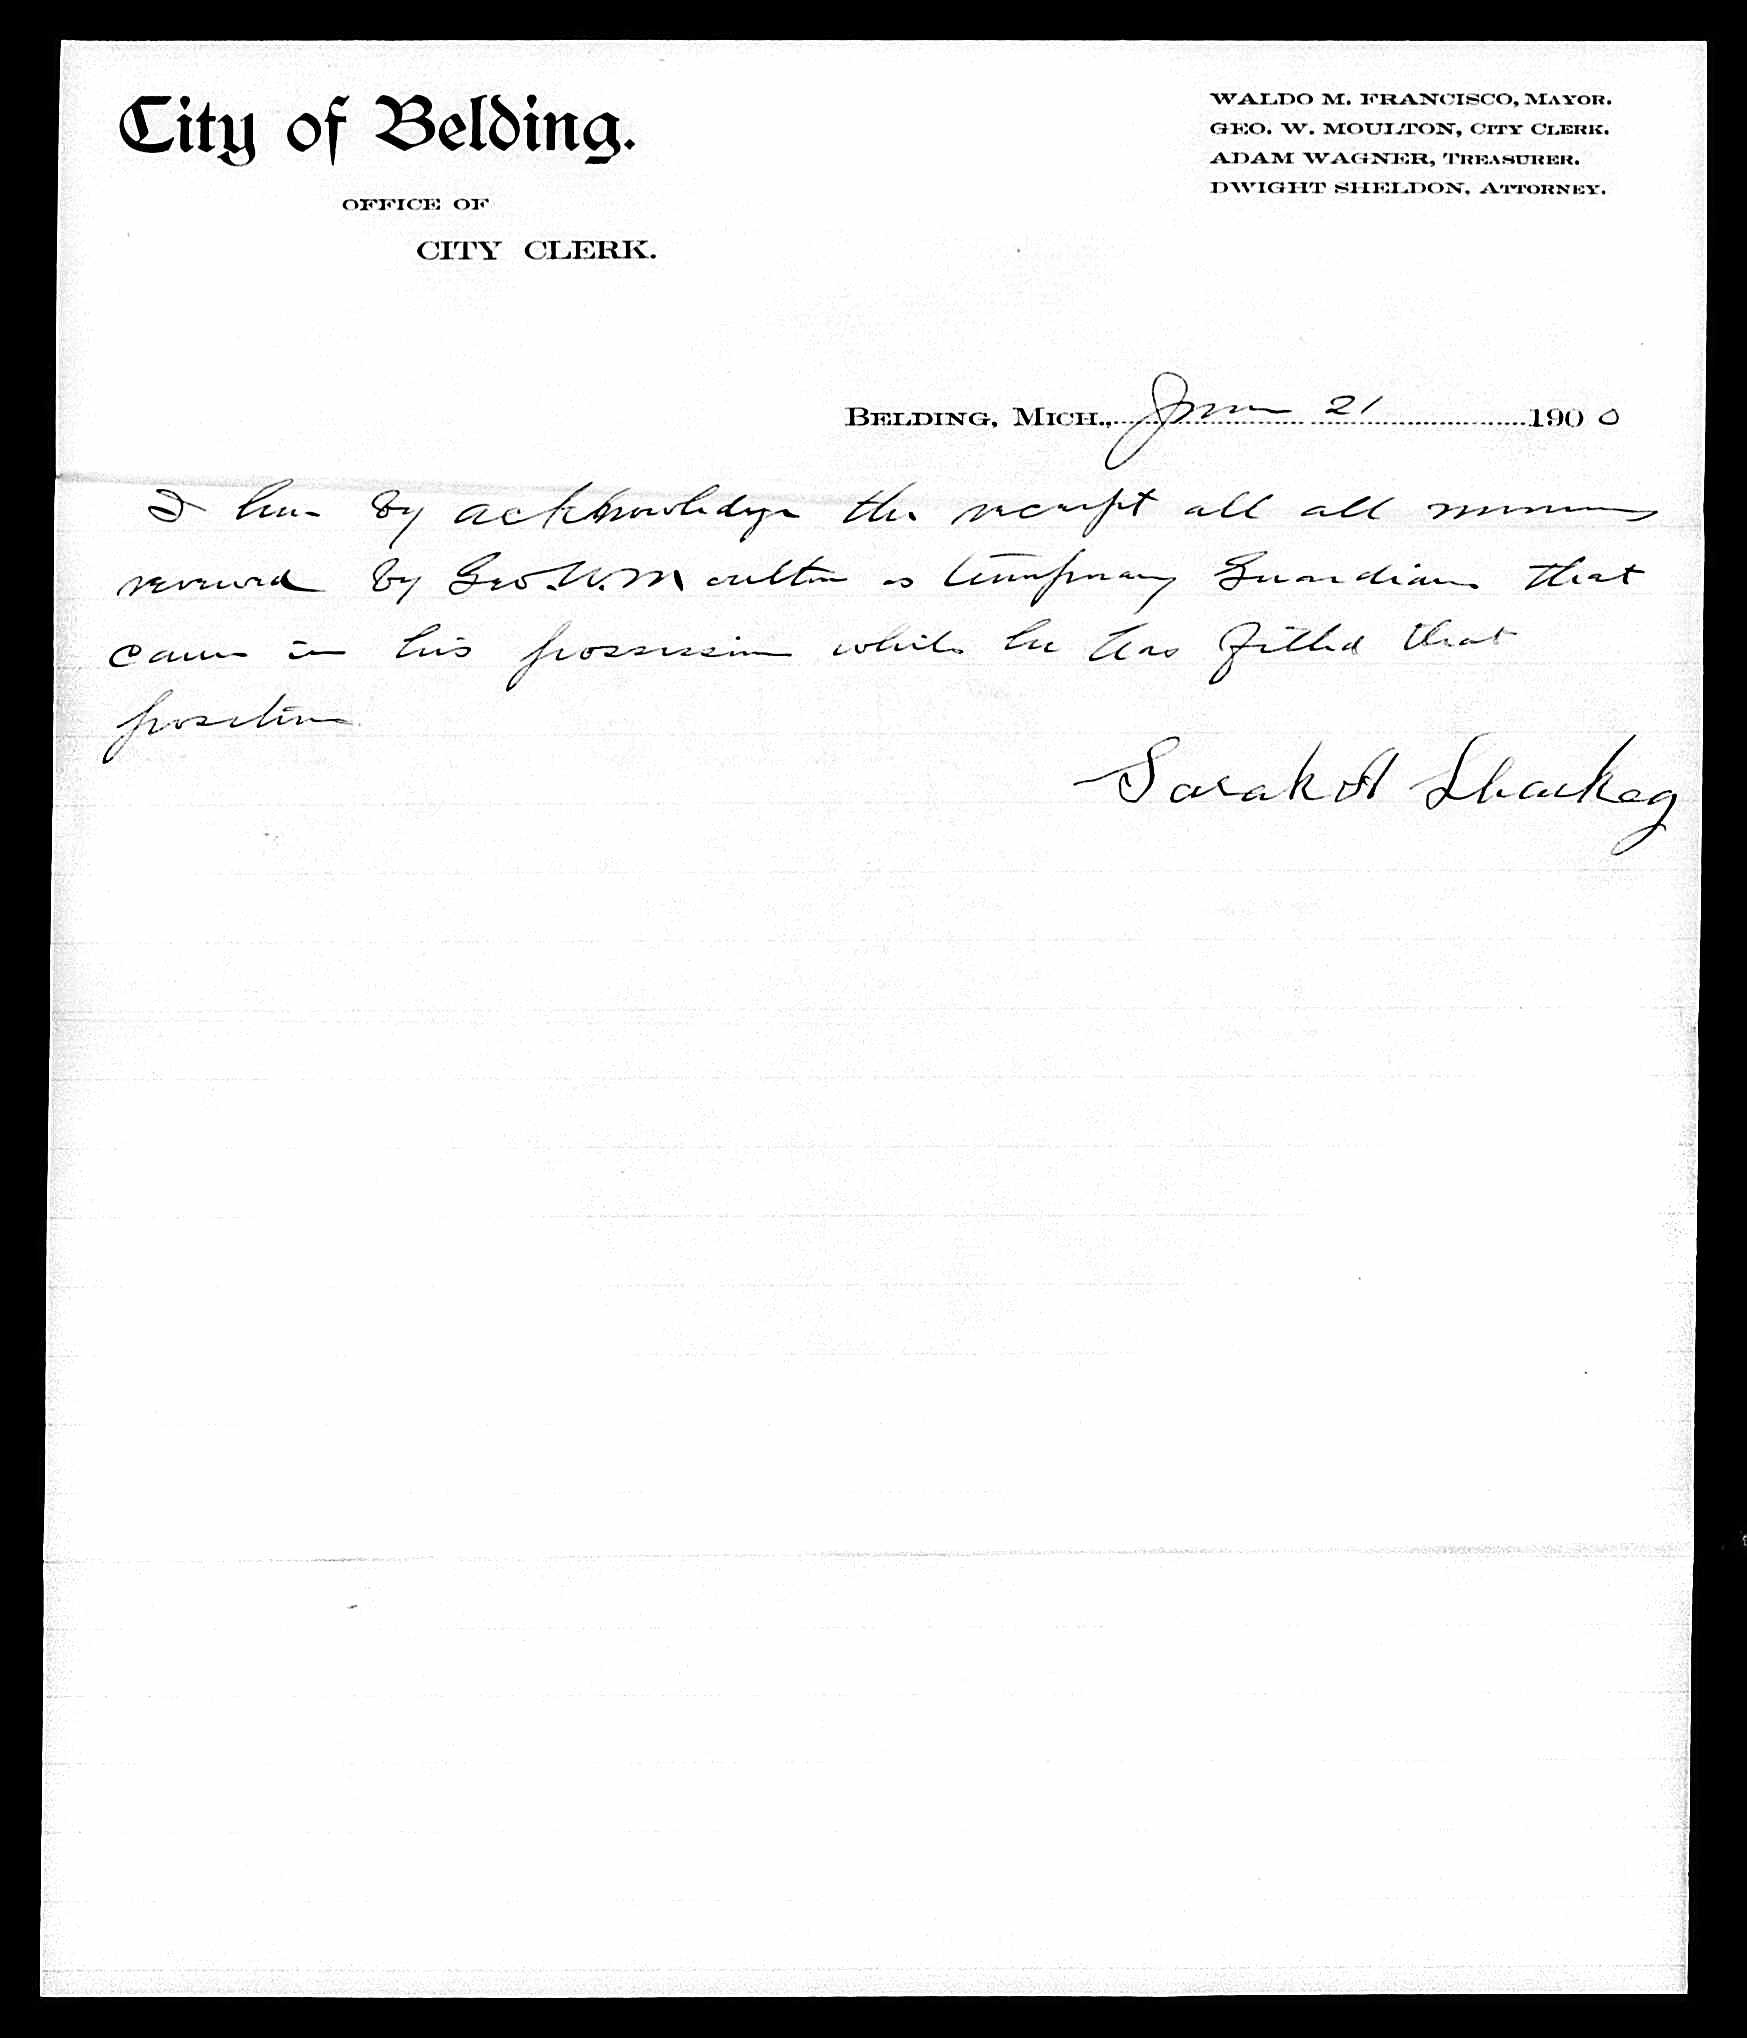 City of Belding.
OFFICE OF
CITY CLERK.
WALDO M. FRANCISCO, MAYOR.
GEO. W. MOULTON, CITY CLERK.
ADAM WAGNER, TREASURER.
DWIGHT SHELDON, ATTORNEY.
BELDING, MICH., June 21 1900
I here by acknowledge the receipt all all moneys
received by Geo. W. Moulton as temporary Guardian that
came in his possession while he has filled that
position
Sarah A Sharkey